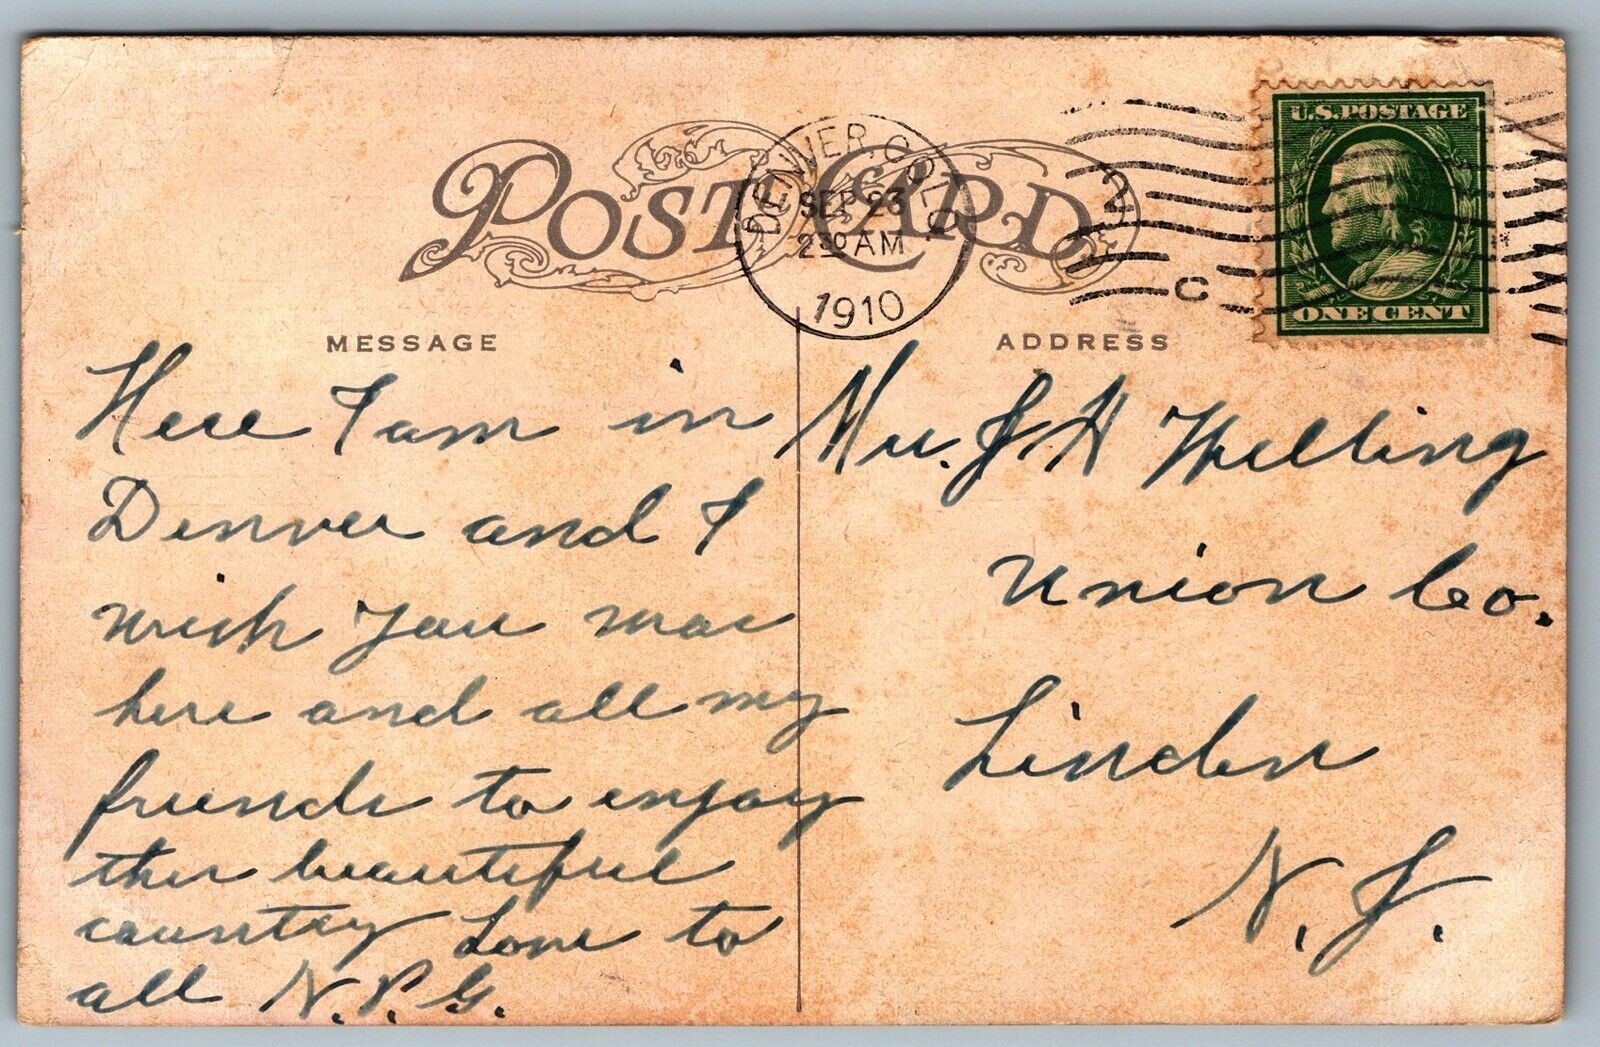 POST CARD
DENVER, COLO.
SEP 23
2 30 AM
1910
2
C
U.S. POSTAGE
ONE CENT
MESSAGE
ADDRESS
Here I am in
Denver and I
wish you was
here and all my
friends to enjoy
this beautiful
country Love to
all N.P.G.
J H Welling
Union Co.
Linden
N. J.